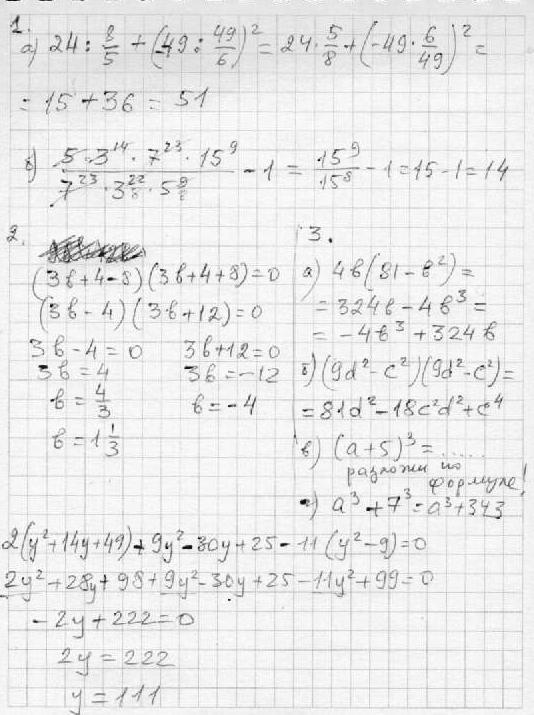 1.
а) 24 : 8/5 + (-49 : 49/6)² = 24 · 5/8 + (-49 · 6/49)² =
= 15 + 36 = 51
б) (5 · 3¹⁴ · 7²³ · 15⁹)/(7²³ · 3²² · 5⁹) - 1 = 15⁹/15⁸ - 1 = 15 - 1 = 14
2.
(3в+4-8)(3в+4+8)=0
(3в-4)(3в+12)=0
3в-4=0 3в+12=0
3в=4 3в=-12
в=4/3 в=-4
в=1 1/3
3.
а) 4в(81-в²)=
=324в-4в³=
=-4в³+324в
б) (9d²-c²)(9d²-c²)=
=81d²-18c²d²+c⁴
в) (a+5)³=.....
разложи по
формуле!
г) a³+7³=a³+343
2(y²+14y+49)+9y²-30y+25-11(y²-9)=0
2y²+28y+98+9y²-30y+25-11y²+99=0
-2y+222=0
2y=222
y=111